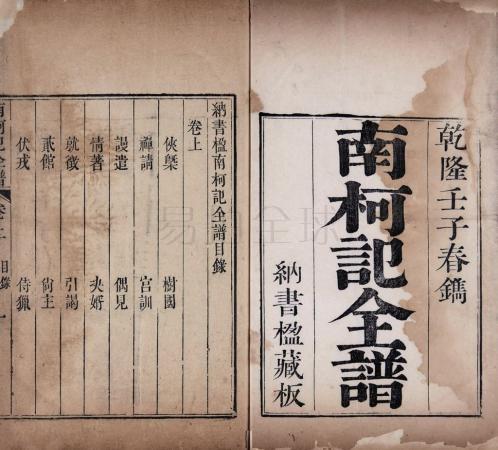 乾隆壬子春鐫
南柯記全譜
納書楹藏板
納書楹南柯記全譜目錄
卷上
俠槩 樹國
禪請 宮訓
謾遣 偶見
情著 決婿
就徵 引謁
貳館 尙主
伏戎 侍獵
南柯記全譜 卷上 目錄 一
易拍全球